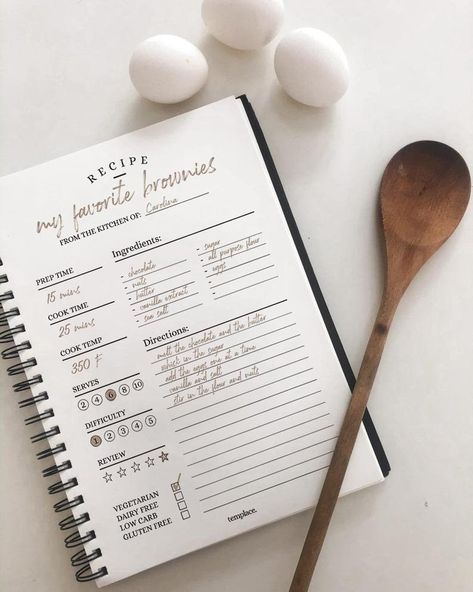 RECIPE
my favorite brownies
FROM THE KITCHEN OF: Carolina
PREP TIME
15 mins
COOK TIME
25 mins
COOK TEMP
350 F
SERVES
2 4 6 8 10
DIFFICULTY
1 2 3 4 5
REVIEW
VEGETARIAN
DAIRY FREE
LOW CARB
GLUTEN FREE
Ingredients:
- chocolate
- nuts
- butter
- vanilla extract
- sea salt
- sugar
- all purpose flour
- eggs
Directions:
melt the chocolate and the butter
whisk in the sugar
add the eggs one at a time
vanilla and salt
stir in the flour and nuts
templace.